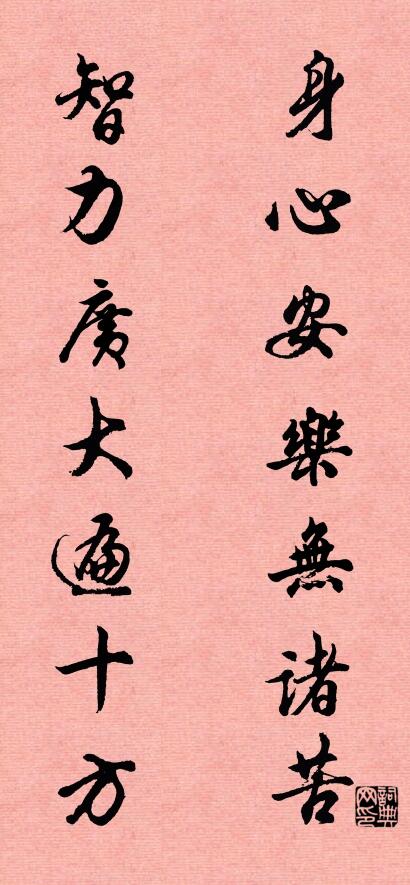 身心安樂無諸苦
智力廣大遍十方
詞典网印